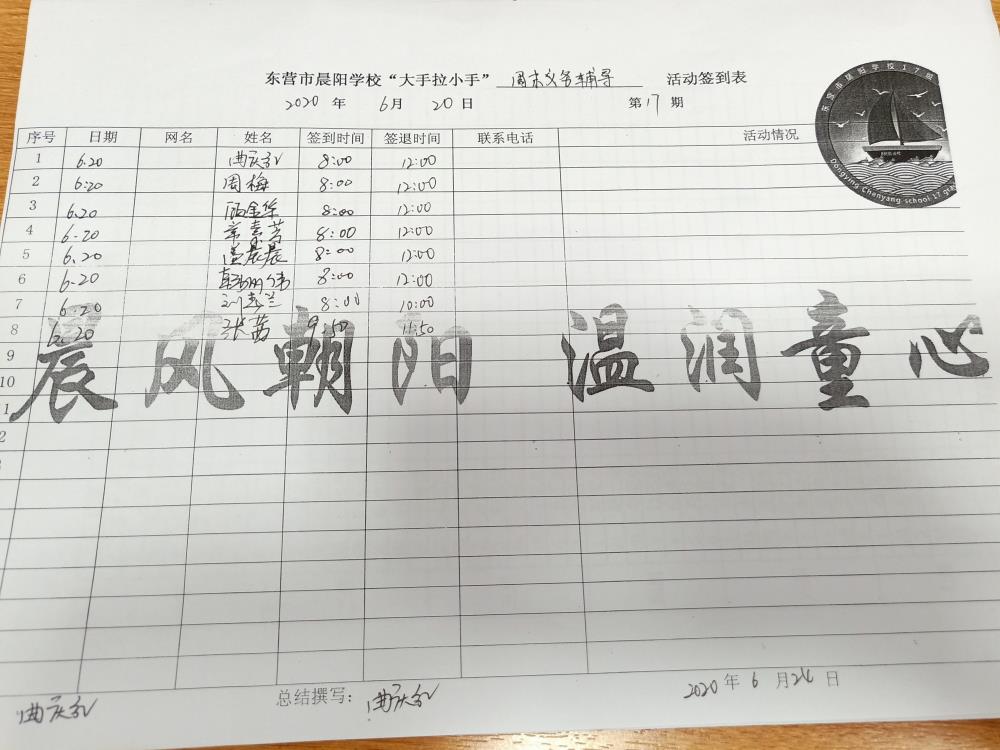 东营市晨阳学校“大手拉小手” 周末义务辅导 活动签到表
2020 年 6月 20 日 第17 期
东营市晨阳学校17班
Dongying Chenyang school 17
序号 日期 网名 姓名 签到时间 签退时间 联系电话 活动情况
1 6.20 8:00 12:00
2 6.20 周梅 8:00 12:00
3 6.20 8:00 12:00
4 6.20 常素芳 8:00 12:00
5 6.20 孟晨晨 8:00 12:00
6 6.20 8:00 12:00
7 6.20 8:00 10:00
8 6.20 张茜 9:50 11:50
9
10
晨风朝阳 温润童心
总结撰写:
2020 年 6 月24 日